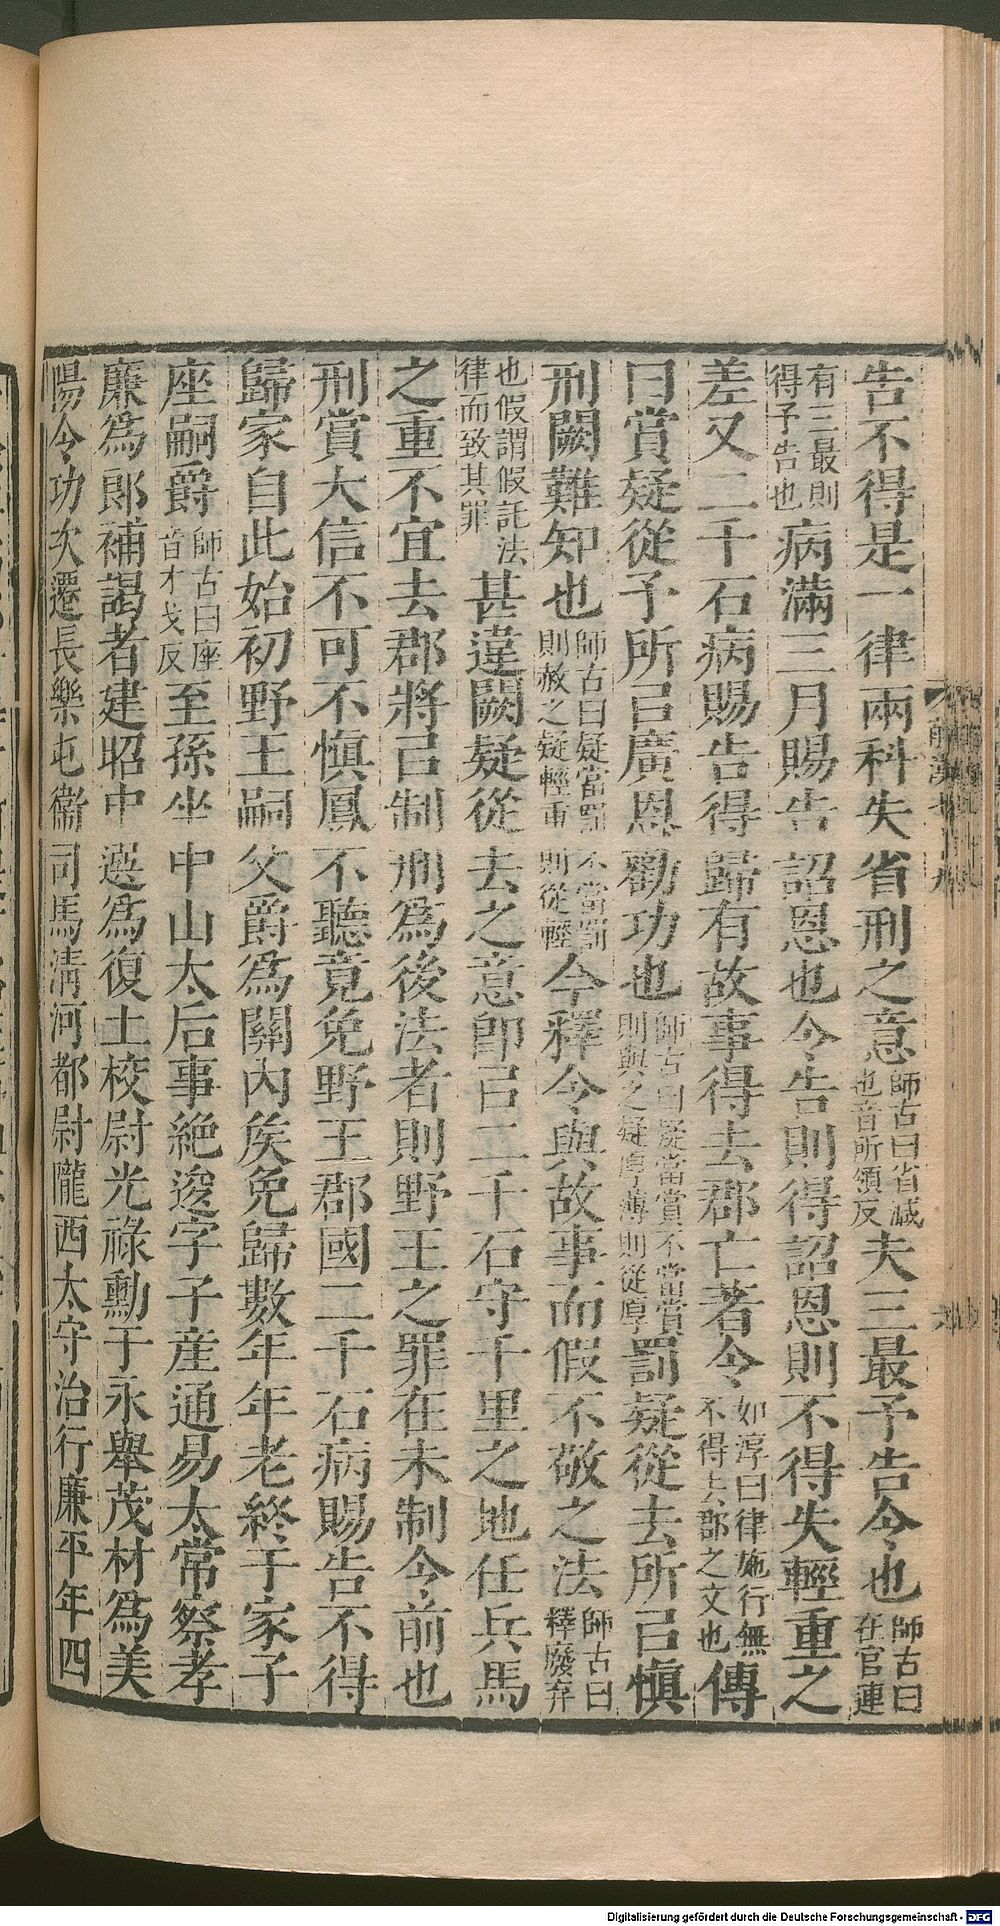 告不得是一律兩科失省刑之意師古曰省減也音所領反夫三最予告令也師古曰在官連
有三最則得予告也病滿三月賜告詔恩也今告則得詔恩則不得失輕重之
差又二千石病賜告得歸有故事得去郡亡著令如淳曰律施行無不得去郡之文也傳
曰賞疑從予所㠯廣恩勸功也師古曰疑當賞不當賞則與之疑厚薄則從厚罰疑從去所㠯慎
刑闕難知也師古曰疑當罰不當罰則赦之疑輕重則從輕今釋令與故事而假不敬之法師古曰釋廢弃
也假謂假託法律而致其罪甚違闕疑從去之意即㠯二千石守千里之地任兵馬
之重不宜去郡將㠯制刑為後法者則野王之罪在未制令前也
刑賞大信不可不慎鳳不聽竟免野王郡國二千石病賜告不得
歸家自此始初野王嗣父爵為關內矦免歸數年年老終于家子
座嗣爵師古曰座音才戈反至孫坐中山太后事絕逡字子產通易太常察孝
廉為郎補謁者建昭中選為復土校尉光祿勳于永舉茂材為美
陽令功次遷長樂屯衞司馬清河都尉隴西太守治行廉平年四
Digitalisierung gefördert durch die Deutsche Forschungsgemeinschaft - DFG